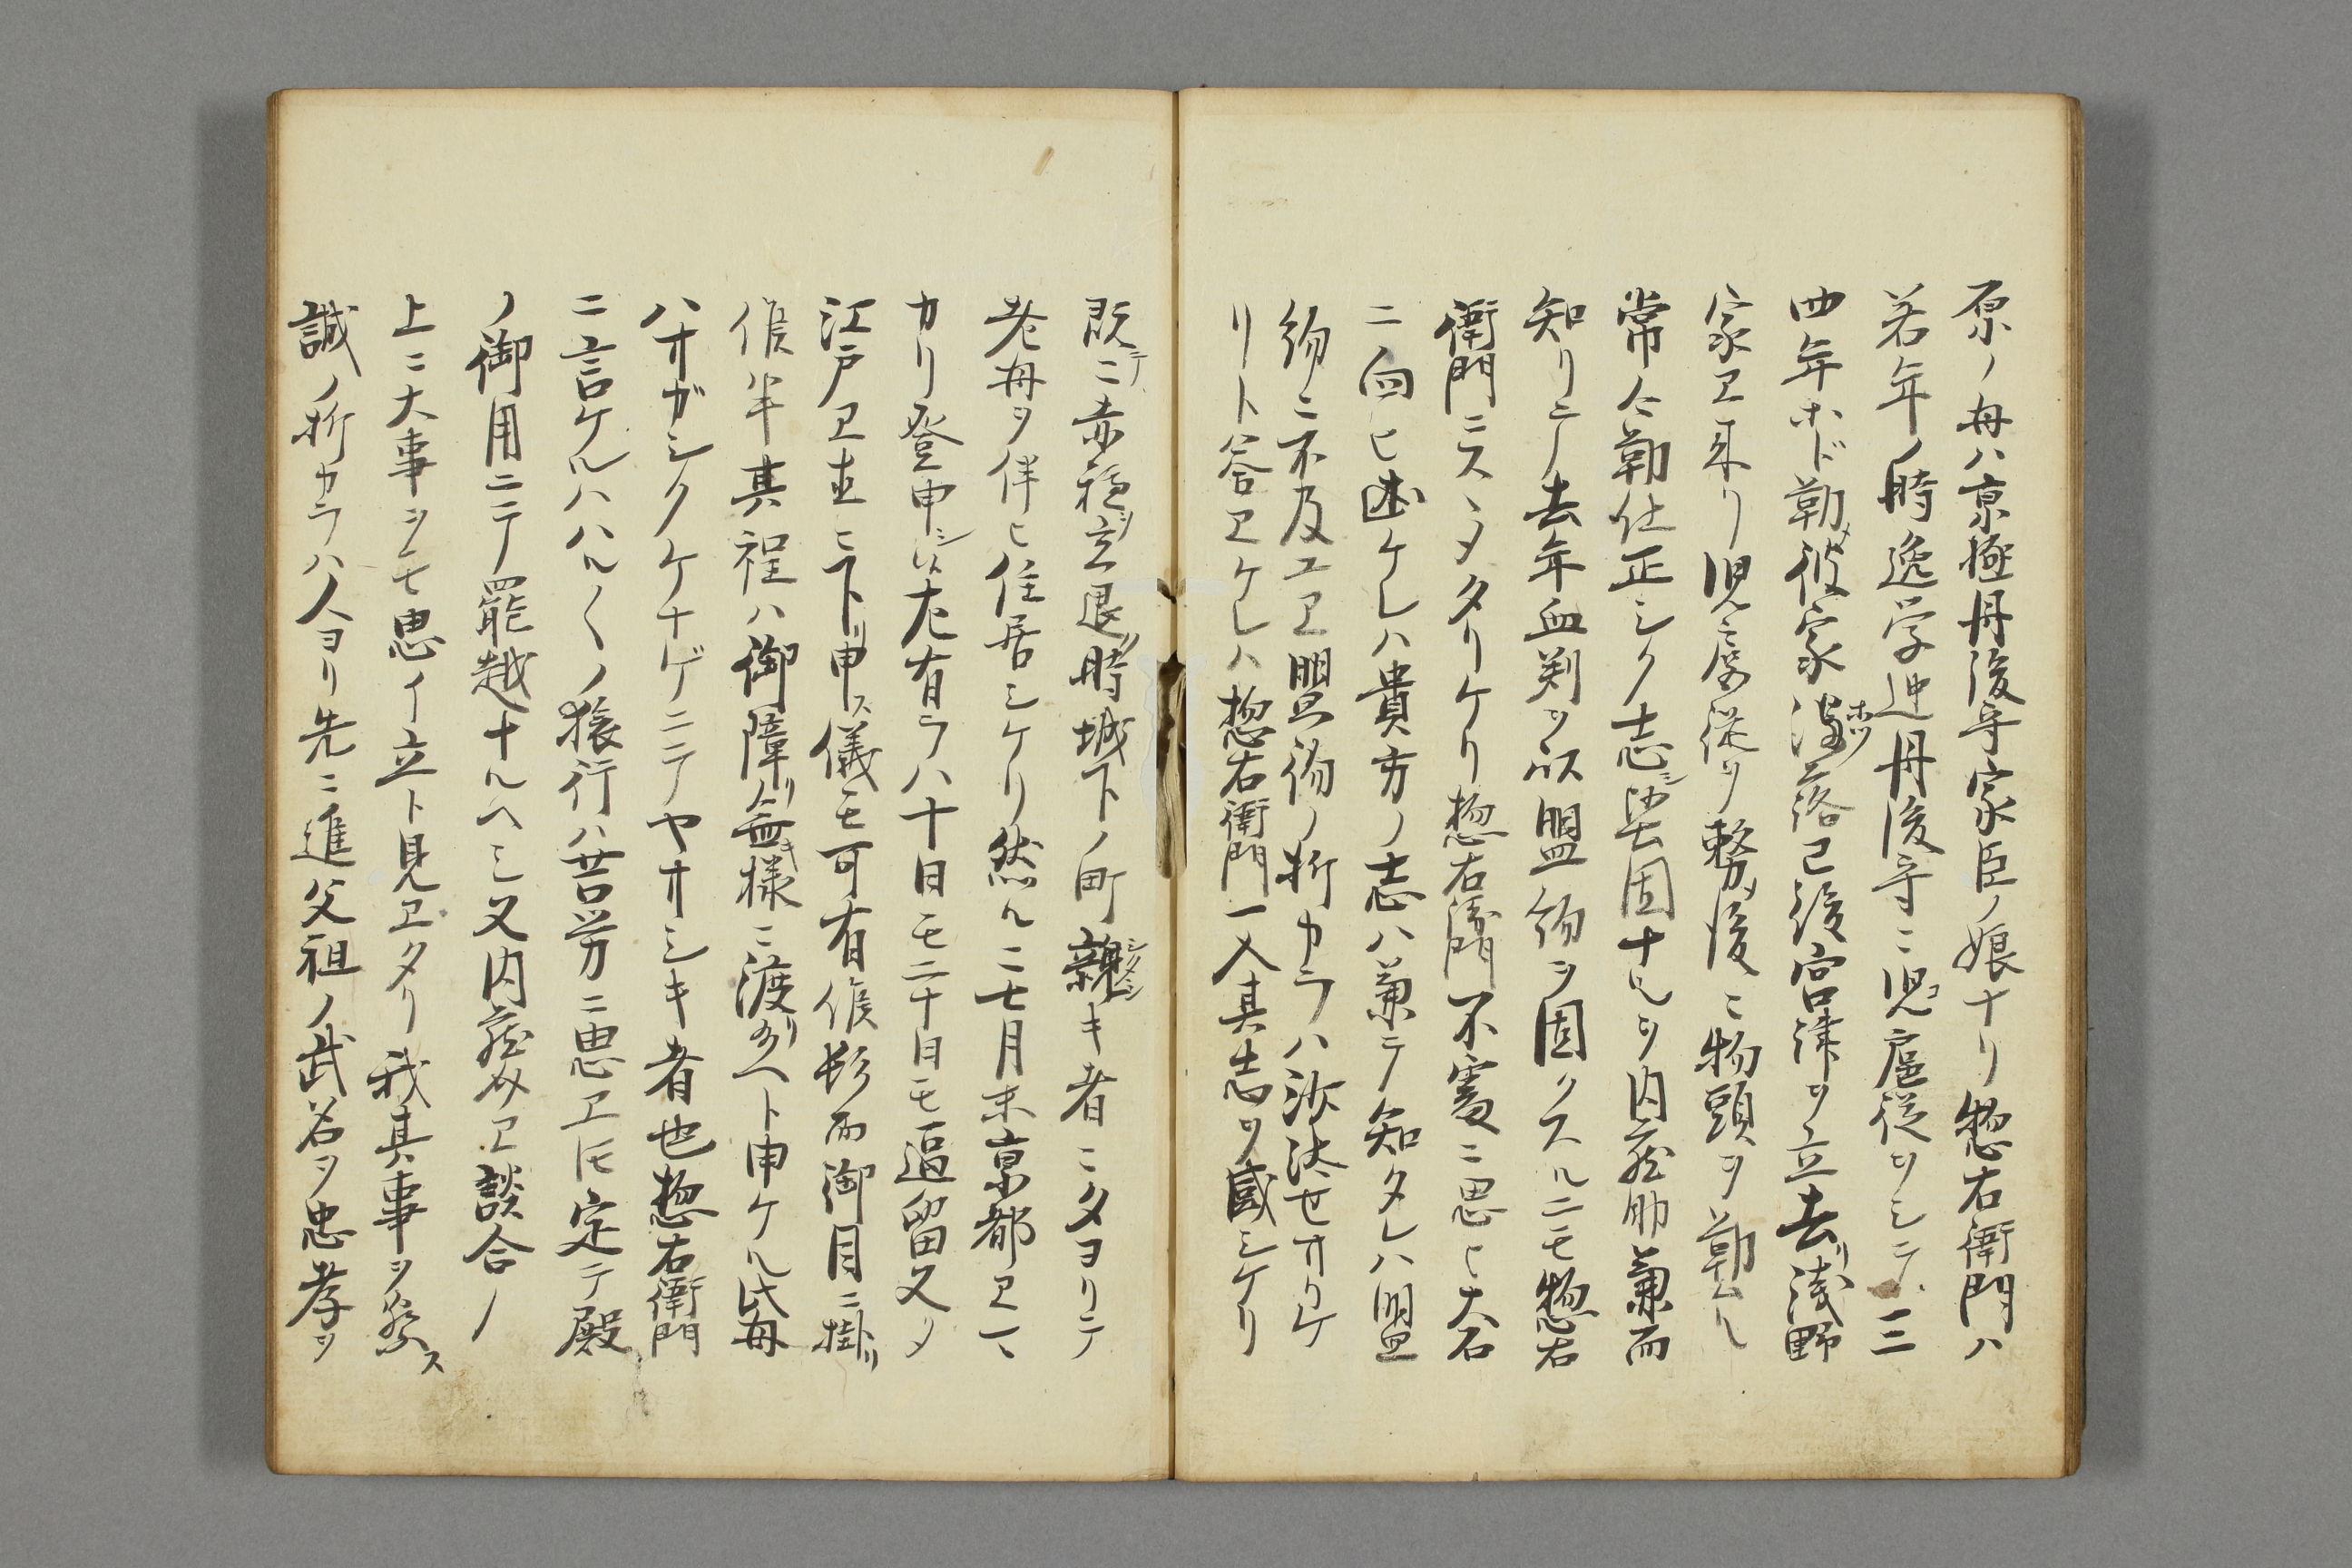 原ノ母ハ京極丹後守家臣ノ娘ナリ惣右衛門ハ
若年ノ時逸学迚丹後守ニ児扈従ヲシテ三
四年ホド勤メ彼家没落已後宮津ヲ立去リ浅野
家エ来リ児扈従ヲ務メ後ニ物頭ヲ勤ム
常々勤仕正シク志シ堅固ナルヲ内蔵助兼而
知リテ去年血判ヲ以盟約ヲ固クスルニモ惣右
衛門ニスヽメタリケリ惣右衛門不審ニ思ヒ大石
ニ向ヒ述ケレハ貴方ノ志ハ兼テ知タレハ盟
約ニ不及ユエ盟約ノ折カラハ沙汰セサリケ
リト答エケレハ惣右衛門一入其志ヲ感シケリ
既ニ赤穂立退時城下ノ町親キ者ニタヨリテ
老母ヲ伴ヒ住居シケリ然ルニ七月末京都エマ
カリ登申シ候左有ラハ十日モ二十日モ逗留又ハ
江戸エ直ニ下リ申ス儀モ可有候於而御目ニ掛リ
候半其程ハ御障リ無キ様ニ渡リ給ヘト申ケル此母
ハオガシクケナゲニテヤオシキ者也惣右衛門
ニ言ケルハハル〱ノ旅行ハ苦労ニ思エ𪜈定テ殿
ノ御用ニテ罷越ナルヘシ又内蔵介エ談合ノ
上ニ大事ヲモ思イ立ト見エタリ我其事ヲ祭ス
誠ノ折カラハ人ヨリ先ニ進父祖ノ武名ヲ忠孝ヲ